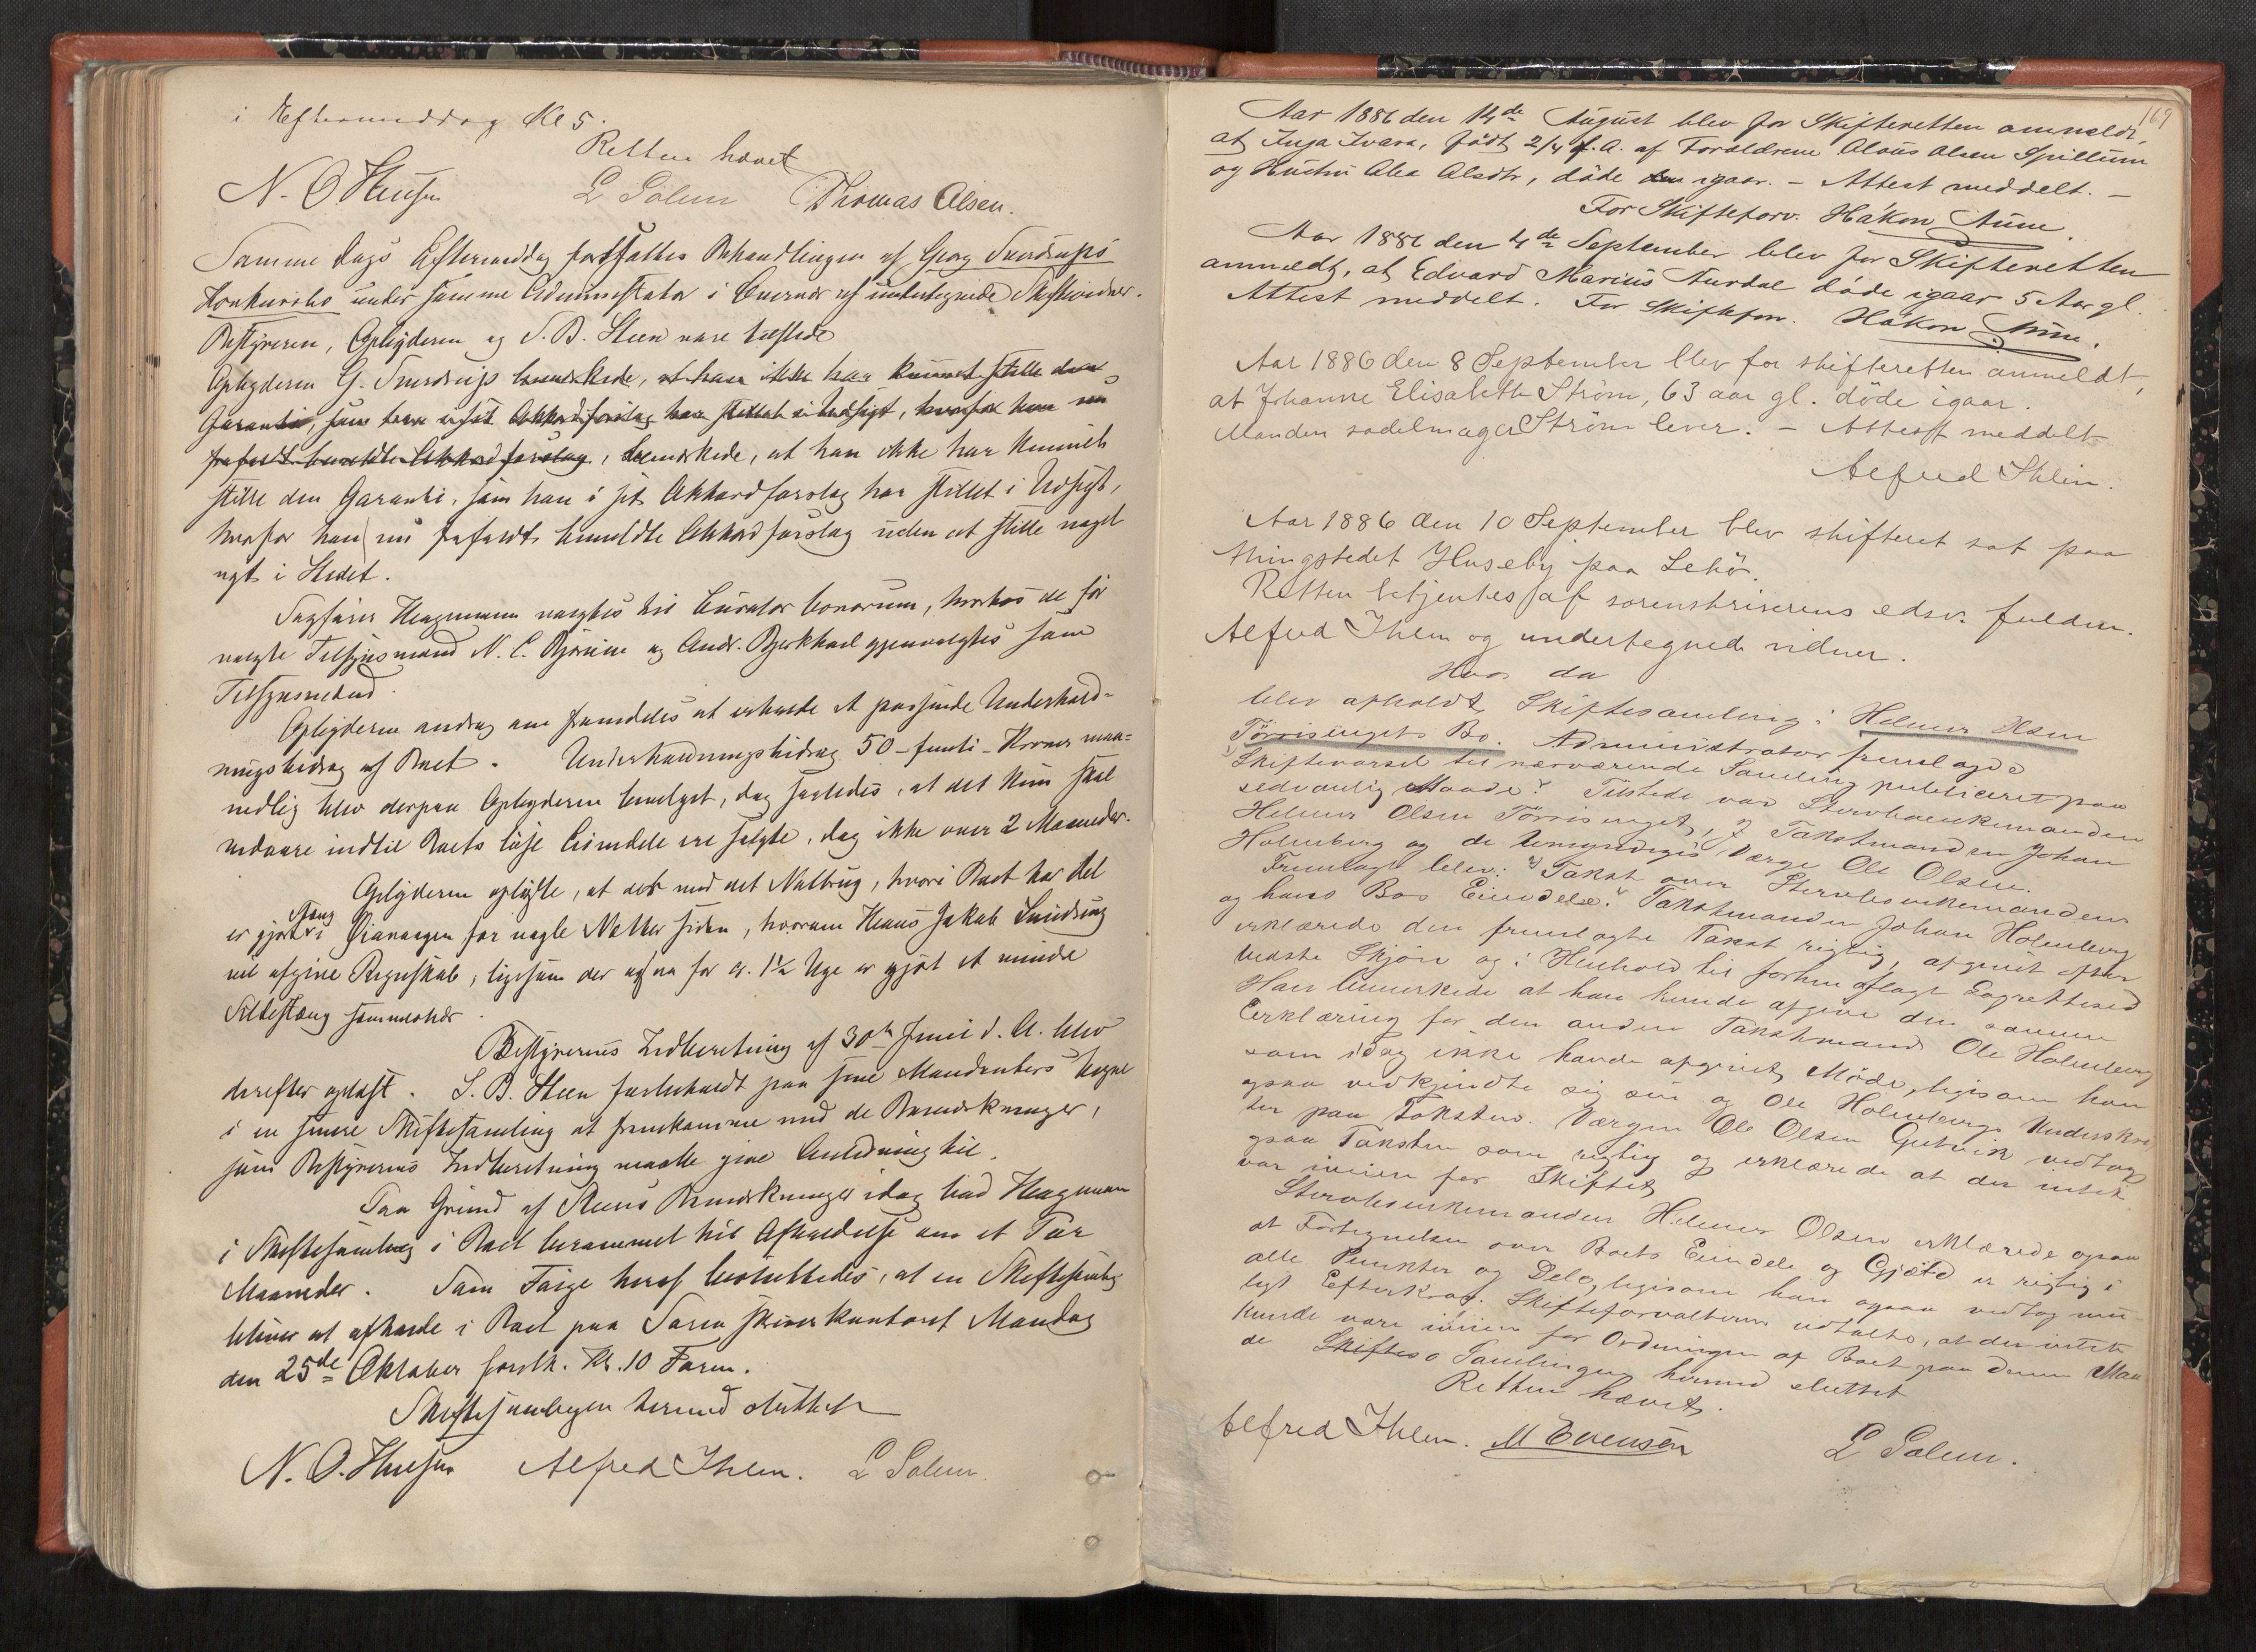 i Eftermiddag Kl 5.
Retten hævet
N. O. Huusen L Solem Thomas Olsen.
Samme Dags Eftermiddag fortsattes Behandlingen af Georg Sverdrups
Konkursbo under samme Administrator i Overvær af undertegnede Skiftevidner.
Bestyreren, Opbyderen og S. B. Steen vare tilstede
Opbyderen G. Sverdrup bemærkede, at han ikke har kunnet stille den
Garanti, som han i sit Akkordforslag har stillet i Udsigt, hvorfor han nu
frafaldt anmeldte Akkordforslag, bemærkede, at han ikke har kunnet
stille den Garanti, som han i sit Akkordforslag har stillet i Udsigt,
hvorfor han nu frafaldt anmeldte Akkordforslag uden at stille noget
nyt i Stedet.
Sagfører Hagemann valgtes til Curator bonorum, hvorhos de før
valgte Tilsynsmænd N. C. og Andr. Bjerkhoel gjenvalgtes som
Tilsynsmænd.
Opbyderen androg om fremdeles at erholde et passende Underhold-
ningsbidrag af Boet. Underholdningsbidrag 50 - femti - Kroner maa-
nedlig blev derpaa Opbyderen bevilget, dog saaledes, at det kun skal
vedvare indtil Boets løse Eiendele ere solgte, dog ikke over 2 Maaneder.
Opbyderen oplyste, at der med det Notbrug, hvori Boet har Del
er gjort Stæng i for nogle Netter siden, hvorom Hans Jakob
vil afgive Regnskab, ligesom der ogsaa for ca. 1½ Uge er gjort et mindre
Sildestæng sammesteds.
Bestyrerens Indberetning af 30te Juni d. A. blev
derefter oplæst. S. B. Steen forbeholdt paa sine Mandanters Vegne
i en senere Skiftesamling at fremkomme med de Bemærkninger,
som Bestyrerens Indberetning maatte give Anledning til.
Paa Grund af Steens Bemærkninger idag bad Hagemann
i Skiftesamling i Boet berammet til Afholdelse om et Par
Maaneder. Som Følge heraf besluttedes, at en Skiftesamling
bliver at afholde i Boet paa Sorenskriverkontoret Mandag
den 25de Oktober førstk. Kl. 10 Form.
Skiftesamlingen hermed sluttet
N. O. Huusen Alfred Ihlen. L Solem.
169
Aar 1886 den 14de August blev for Skifteretten anmeldt,
at Inga Ivara, født 2/4 d. A. af Forældrene Olaus Olsen Spillum
og Hustru Olea Olsdtr, døde den igaar. - Attest meddelt. -
For Skifteforv. Håkon Aune.
Aar 1886 den 4de September blev for Skifteretten
anmeldt, at Edvard Marius Aurdal døde igaar 5 Aar gl.
Attest meddelt. For Skifteforv. Håkon Aune.
Aar 1886 den 8 September blev for skifteretten anmeldt,
at Johanne Elisabeth Strøm, 63 aar gl. døde igaar.
Manden sadelmager Strøm lever. - Attest meddelt
Alfred Ihlen.
Aar 1886 den 10 September blev skifteret sat paa
thingstedet Huseby paa Lekø.
Retten betjentes af sorenskriverens edsv. fuldm.
Alfred Ihlen og undertegnede vidner.
Hvor da
blev afholdt Skiftesamling i Helmer Olsen
Tørrisengets Bo. Administrator fremlagde
Skiftevarsel til nærværende Samling publiceret paa
sedvanlig Maade. Tilstede var Stervboenkemanden
Helmer Olsen Tørrisenget, Takstmanden Johan
Holmberg og de Umyndiges Værge Ole Olsen.
Fremlagt blev: Takst over Stervboenkemandens
og hans Bos Eiendele. Takstmanden Johan Holmberg
erklærede den fremlagte Takst rigtig, afgivet efter
bedste Skjøn og i Henhold til forhen aflagt Lagrettesed
Han bemærkede at han kunde afgive den samme
Erklæring for den anden Takstmand Ole Holmberg
som idag ikke havde afgivet Møde, ligesom han
ogsaa vedkjendte sig sin og Ole Holmbergs Underskrif
ter paa Taksten. Værgen Ole Olsen Gutvik vedtog
ogsaa Taksten som rigtig og erklærede at der intet
var imien for Skiftet
Stervboenkemanden Helmer Olsen erklærede ogsaa
at Fortegnelsen over Boets Eiendele og Gjæld er rigtig i
alle Punkter og Dele, ligesom han ogsaa vedtog mu-
ligt Efterkrav. Skifteforvalteren udtalte, at der intet
kunde være imien for Ordningen af Boet paa denne Maa
de Skiftes Samlingen hermed sluttet
Retten hævet.
Alfred Ihlen. M Evensen L Solem.